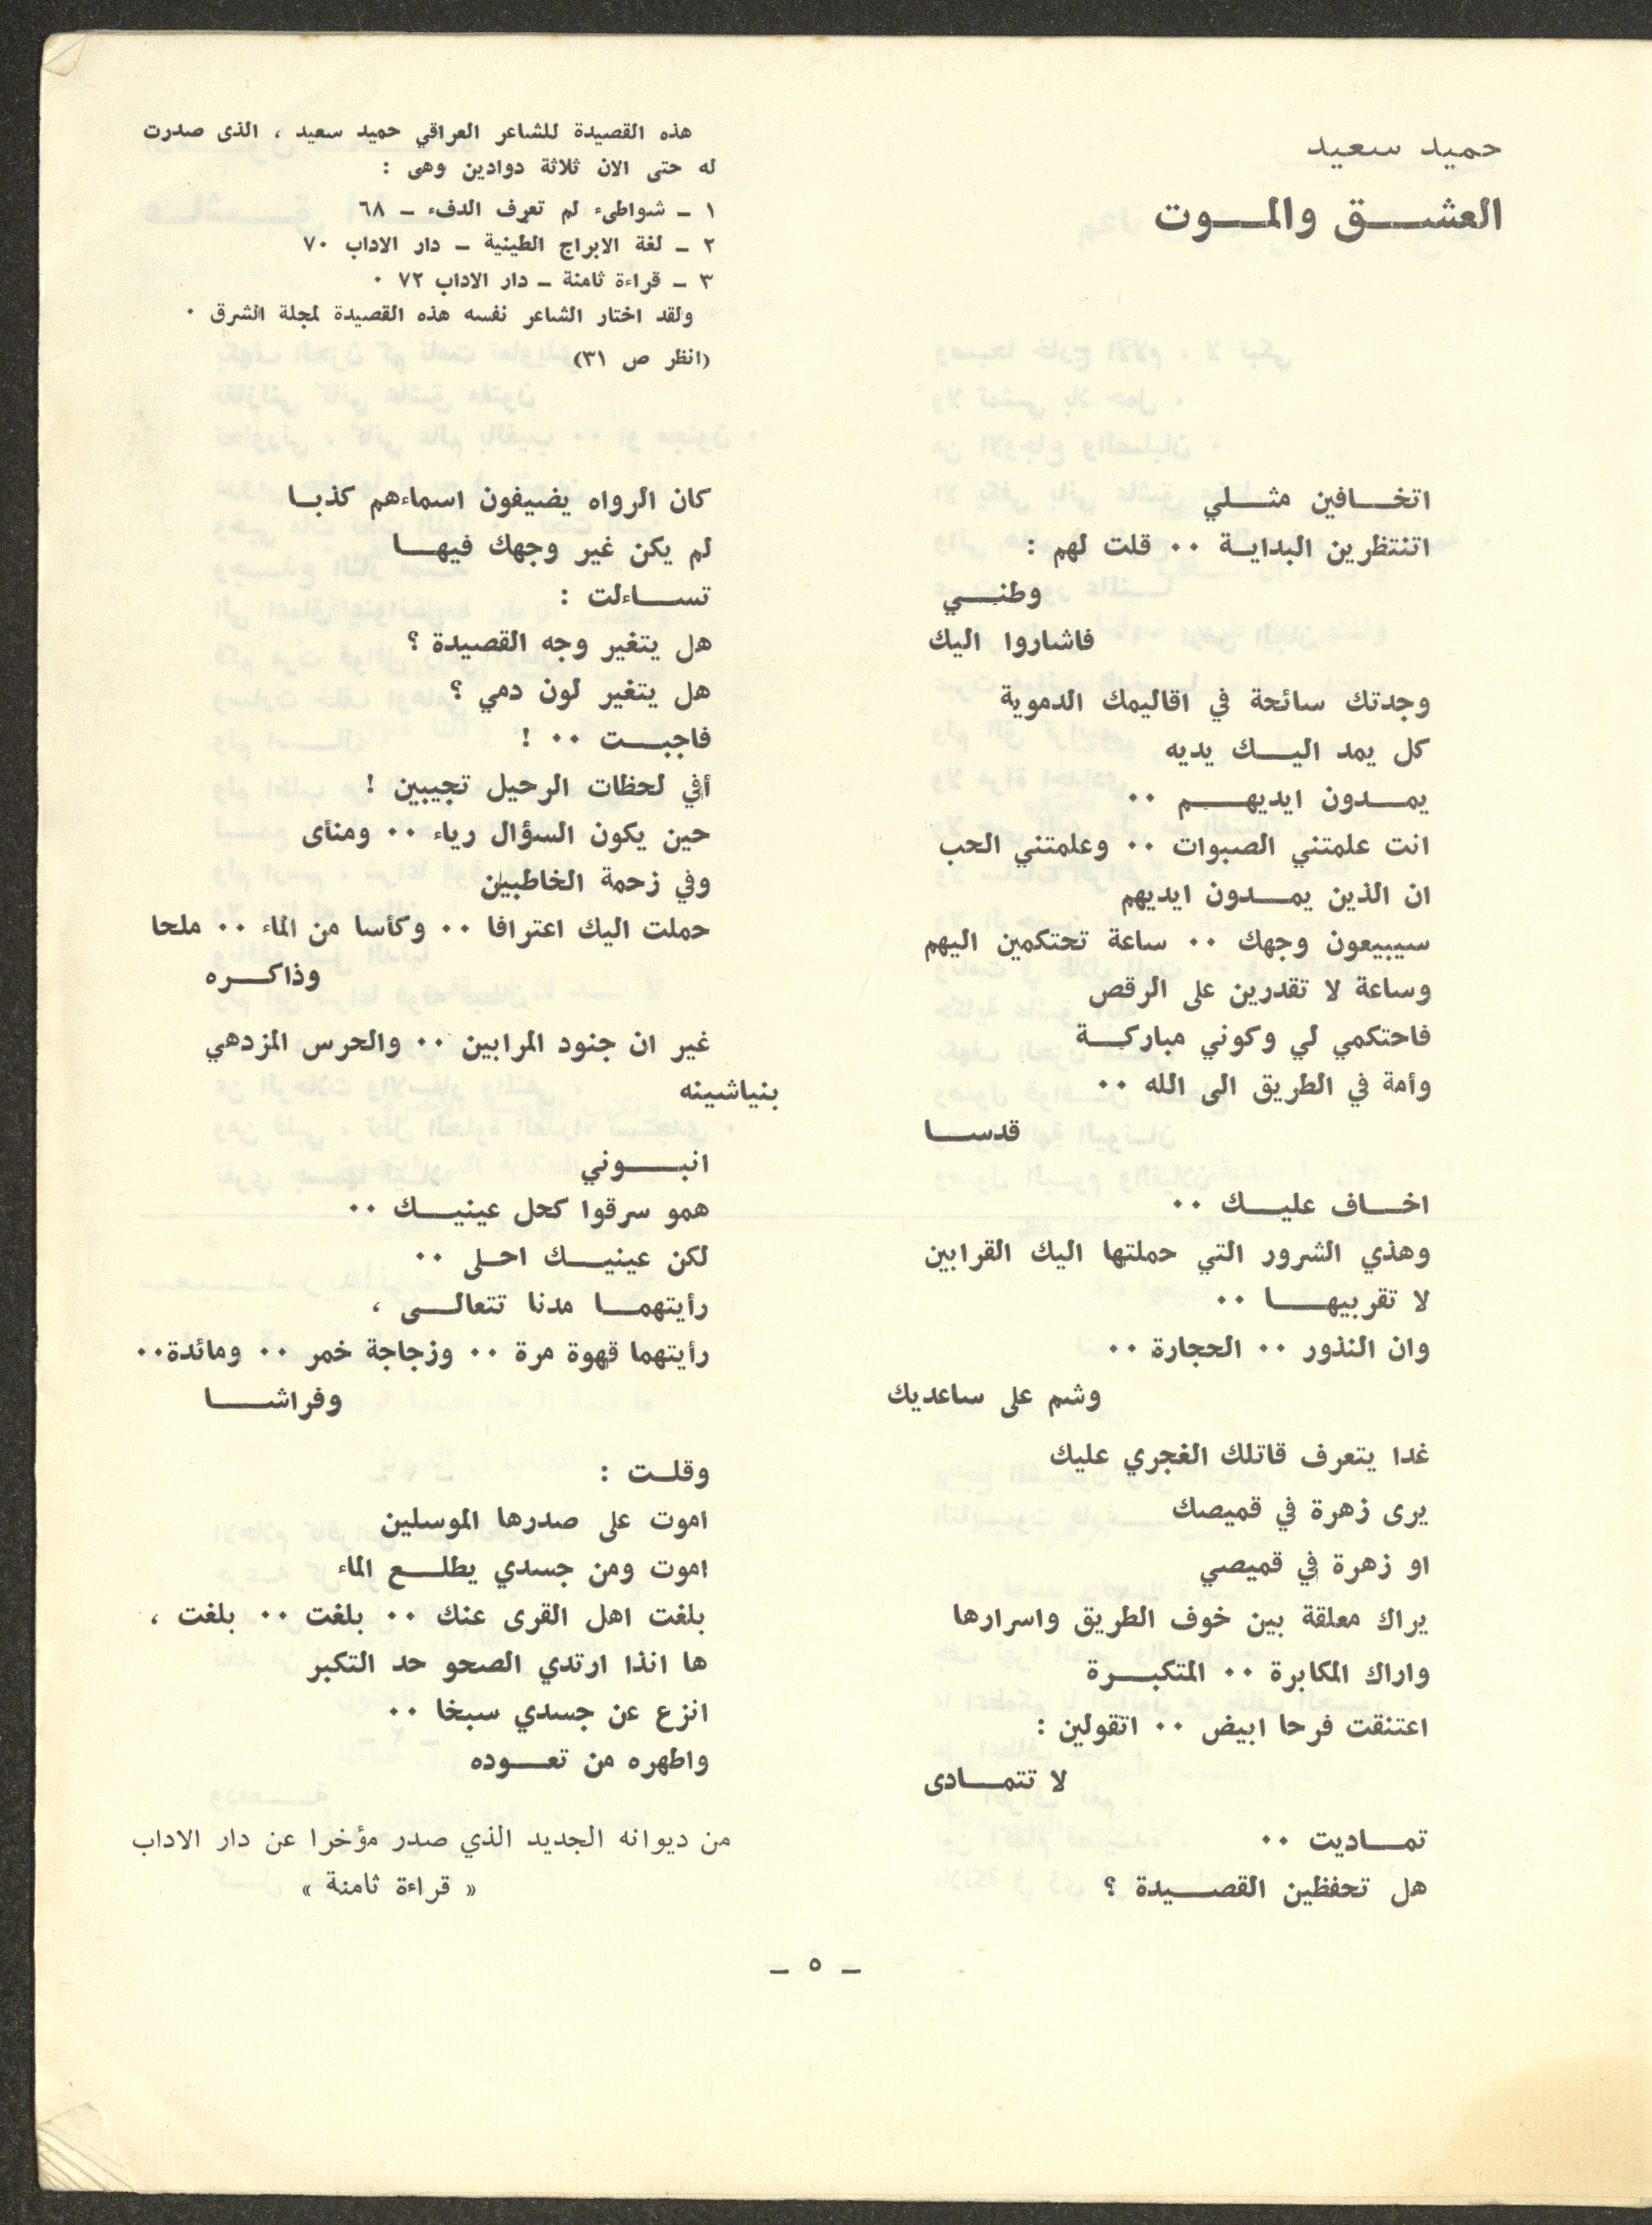 حميد سعيد
العشــق والمــوت
هذه القصيدة للشاعر العراقي حميد سعيد ، الذى صدرت
له حتى الان ثلاثة دوادين وهى :
١ ــ شواطىء لم تعرف الدفء ــ ٦٨
٢ ــ لغة الابراج الطينية ــ دار الاداب ٧٠
٣ ــ قراءة ثامنة ــ دار الاداب ٧٢ ٠
ولقد اختار الشاعر نفسه هذه القصيدة لمجلة الشرق ٠
(انظر ص ٣١)
اتخــافين مثــلي
اتنتظرين البدايــة ٠٠ قلت لهم :
وطنــي
فاشاروا اليك
وجدتك سائحة في اقاليمك الدموية
كل يمد اليــك يديه
يمــدون ايديهــم ٠٠
انت علمتني الصبوات ٠٠ وعلمتني الحب
ان الذين يمــدون ايديهم
سيبيعون وجهك ٠٠ ساعة تحتكمين اليهم
وساعة لا تقدرين على الرقص
فاحتكمي لي وكوني مباركــة
وأمة في الطريق الى الله ٠٠
قدســا
اخــاف عليــك ٠٠
وهذي الشرور التي حملتها اليك القرابين
لا تقربيهــا ٠٠
وان النذور ٠٠ الحجارة ٠٠
وشم على ساعديك
غدا يتعرف قاتلك الغجري عليك
يرى زهرة في قميصك
او زهرة في قميصي
يراك معلقة بين خوف الطريق واسرارها
واراك المكابرة ٠٠ المتكبــرة
اعتنقت فرحا ابيض ٠٠ اتقولين :
لا تتمــادى
تمــاديت ٠٠
هل تحفظين القصــيدة ؟
كان الرواه يضيفون اسماءهم كذبــا
لم يكن غير وجهك فيهــا
تســاءلت :
هل يتغير وجه القصيدة ؟
هل يتغير لون دمي ؟
فاجبــت ٠٠ !
أفي لحظات الرحيل تجيبين !
حين يكون السؤال رياء ٠٠ ومنأى
وفي زحمة الخاطبين
حملت اليك اعترافا ٠٠ وكأسا من الماء ٠٠ ملحا
وذاكــره
غير ان جنود المرابين ٠٠ والحرس المزدهي
بنياشينه
انبــوني
همو سرقوا كحل عينيــك ٠٠
لكن عينيــك احــلى ٠٠
رأيتهمــا مدنا تتعالــى ،
رأيتهما قهوة مرة ٠٠ وزجاجة خمر ٠٠ ومائدة٠٠
وفراشــا
وقلــت :
اموت على صدرها الموسلين
اموت ومن جسدي يطلــع الماء
بلغت اهل القرى عنك ٠٠ بلغت ٠٠ بلغت ،
ها انذا ارتدي الصحو حد التكبر
انزع عن جسدي سبخا ٠٠
واطهره من تعــوده
من ديوانه الجديد الذي صدر مؤخرا عن دار الاداب
« قراءة ثامنة »
ــ ٥ ــ